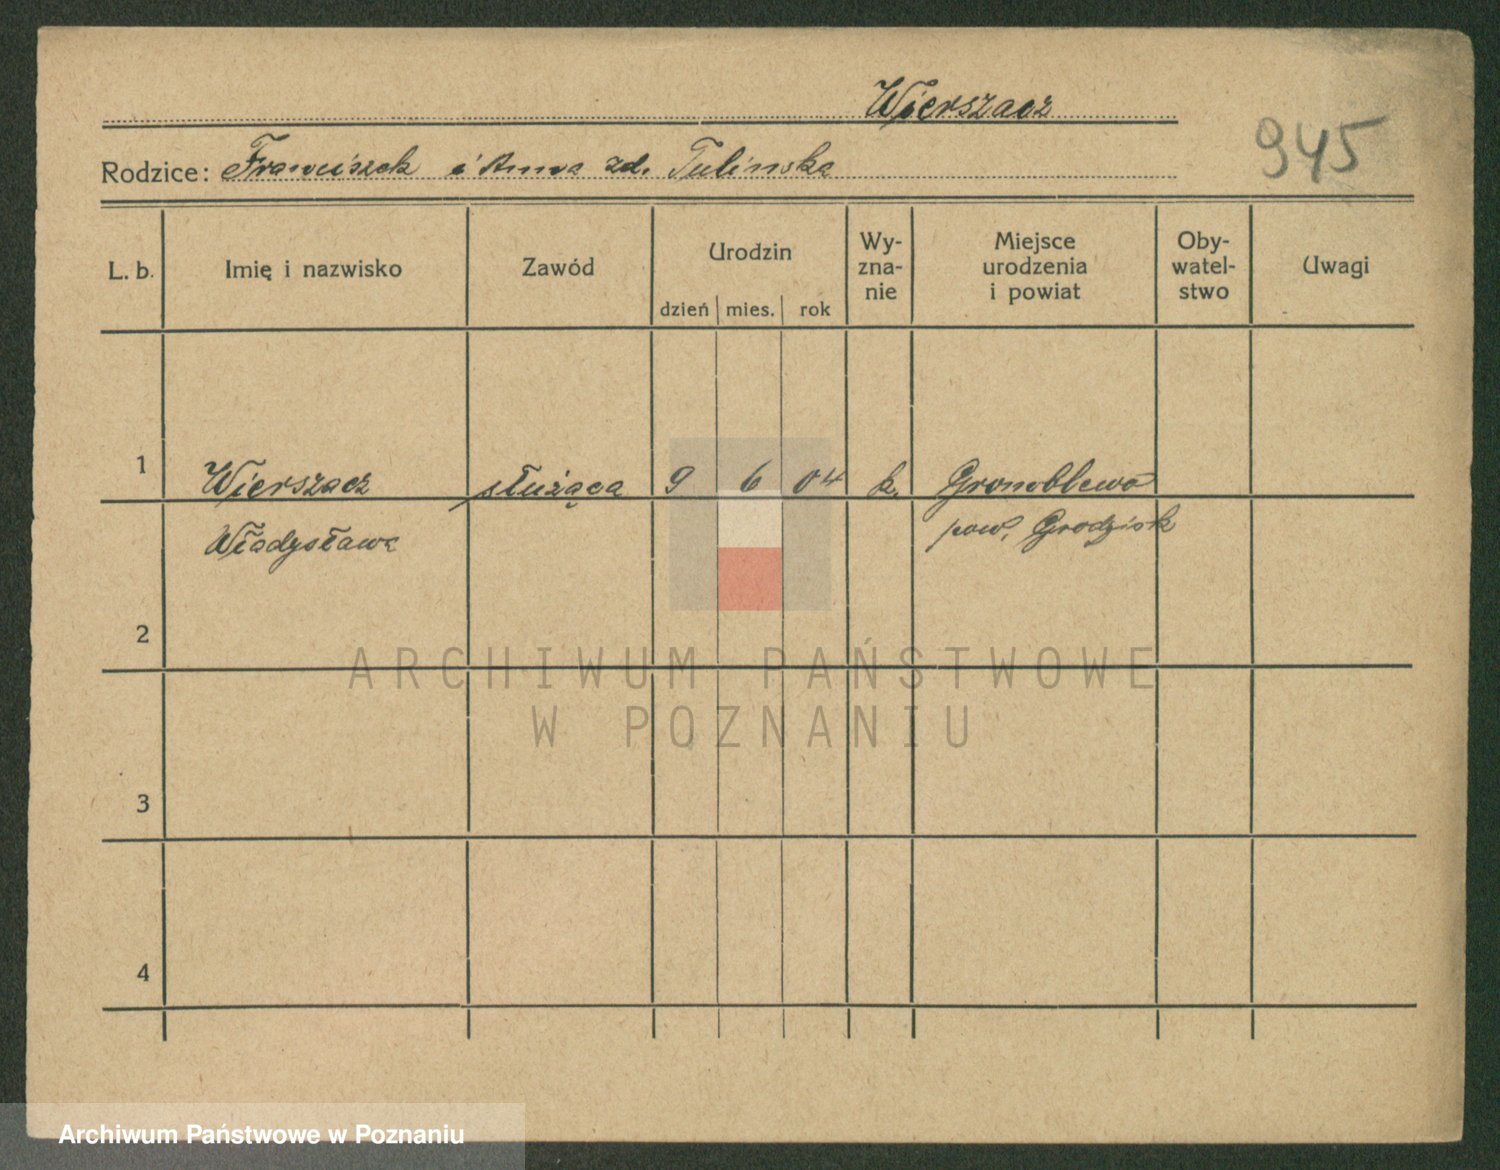 Wierszacz
945
Rodzice: Franciszek i Anna zd. Tulinska
L. b. Imię i nazwisko Zawód Urodzin dzień mies. rok Wy-zna-nie Miejsce urodzenia i powiat Oby-watel-stwo Uwagi
1 Wierszacz służąca 9 6 04 k. Gronoblewo
Władysława pow. Grodzisk
2
ARCHIWUM PAŃSTWOWE
W POZNANIU
3
4
Archiwum Państwowe w Poznaniu